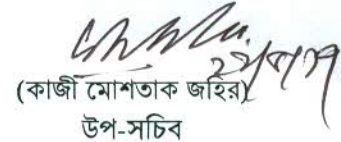 (কাজী মোশতাক জহির)
উপ-সচিব